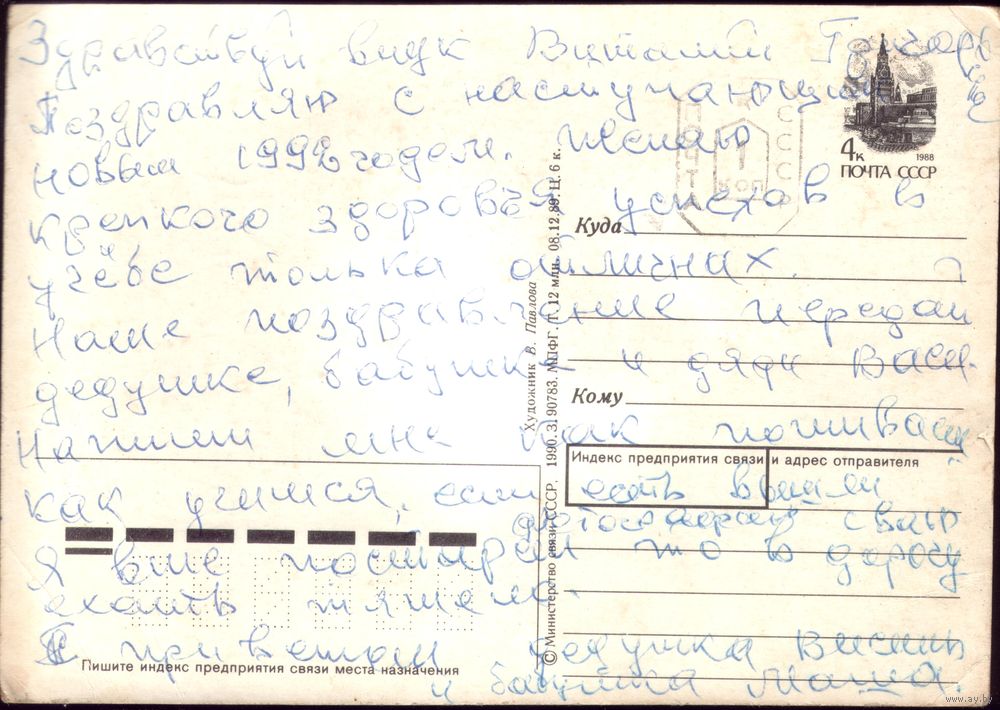 Здравствуй внук Виталий
Поздравляю с наступающим
новым 1992 годом. желаю
крепкого здоровья успехов в
учёбе толька отличних.
Наше поздравление передай
дедушке, бабушке и дяди Васи.
Напиши мне как поживаеш
как учишся, если есть вышли
фотографию свою
Я вже постарел то в дорогу
ехать тяжело.
С приветом дедушка Василь
и бабушка Маша.
4к
1988
ПОЧТА СССР
ПОЧТА
СССР
1
КОП
Куда
Кому
Индекс предприятия связи и адрес отправителя
Пишите индекс предприятия связи места назначения
Художник В. Павлова
© Министерство связи СССР, 1990. З. 190783. МПФГ. Т. 12 млн. 08.12.89. Ц. 6 к.
www.ay.by